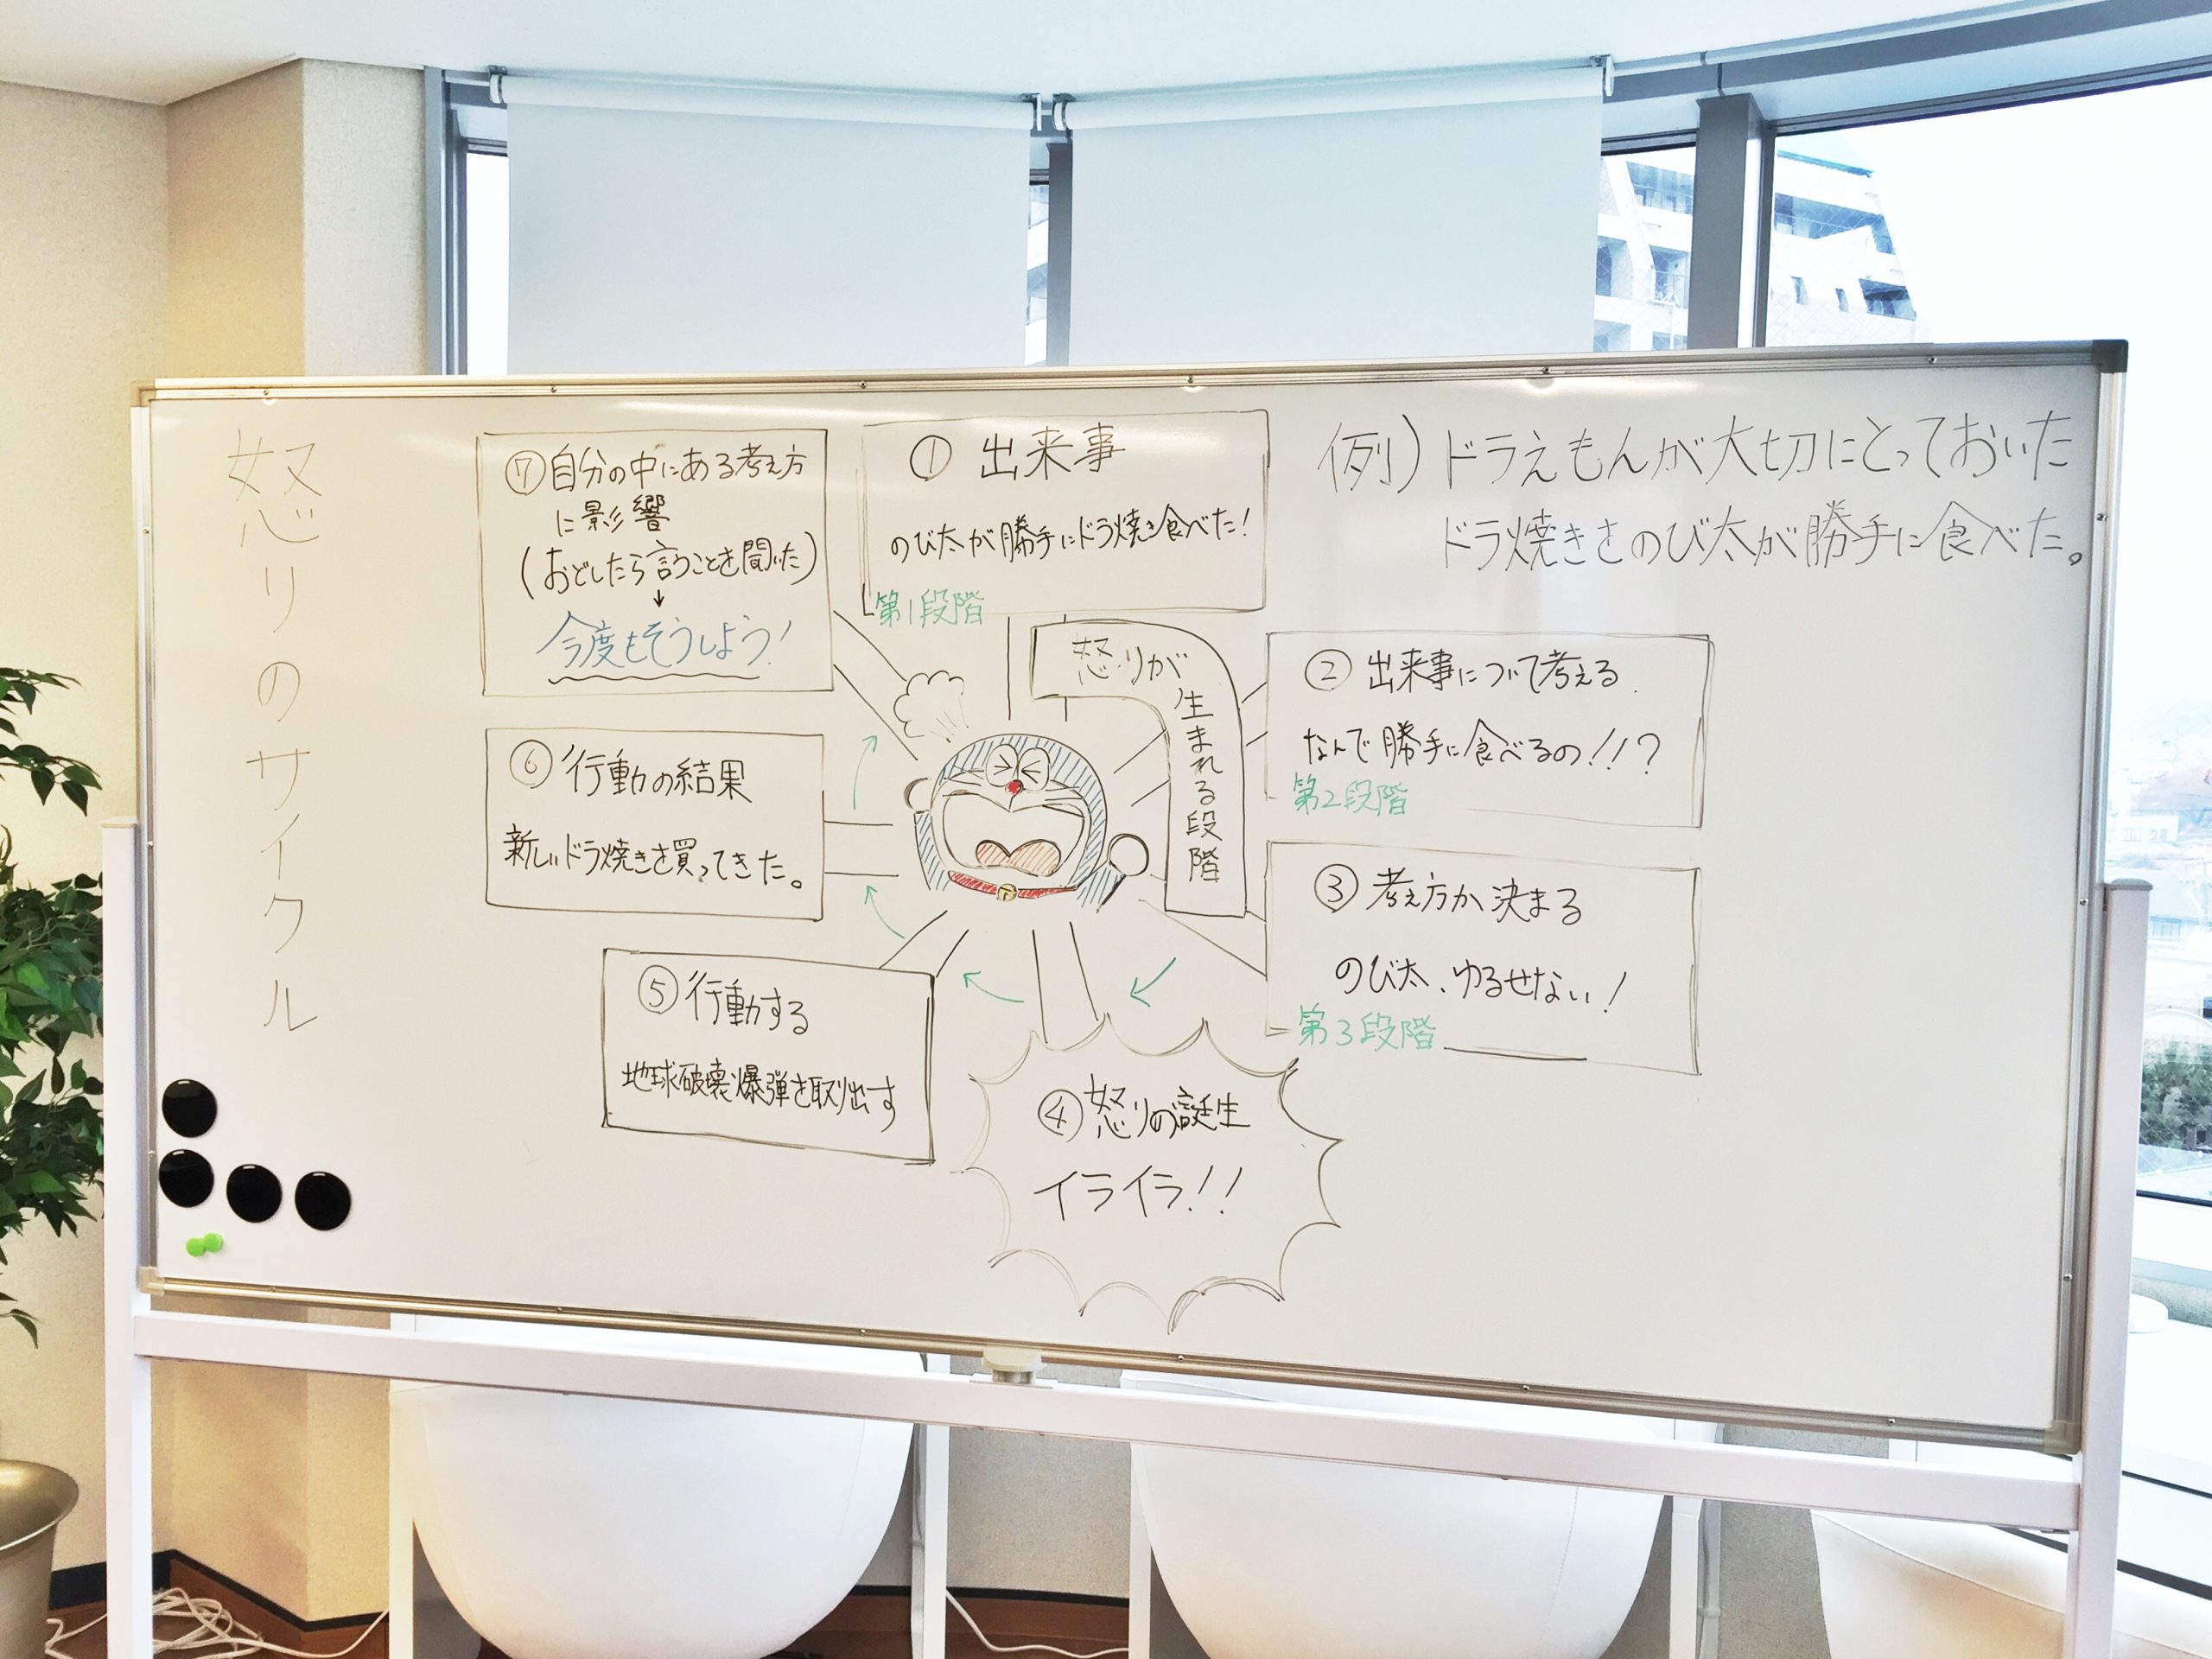 怒りのサイクル
例）ドラえもんが大切にとっておいた
ドラ焼きをのび太が勝手に食べた。
① 出来事
のび太が勝手にドラ焼き食べた！
第1段階
怒りが生まれる段階
② 出来事について考える
なんで勝手に食べるの！！？
第2段階
③ 考え方が決まる
のび太、ゆるせない！
第3段階
④ 怒りの誕生
イライラ！！
⑤ 行動する
地球破壊爆弾を取り出す
⑥ 行動の結果
新しいドラ焼きを買ってきた。
⑦ 自分の中にある考え方
に影響
（おどしたら言うことを聞いた）
↓
今度もそうしよう！